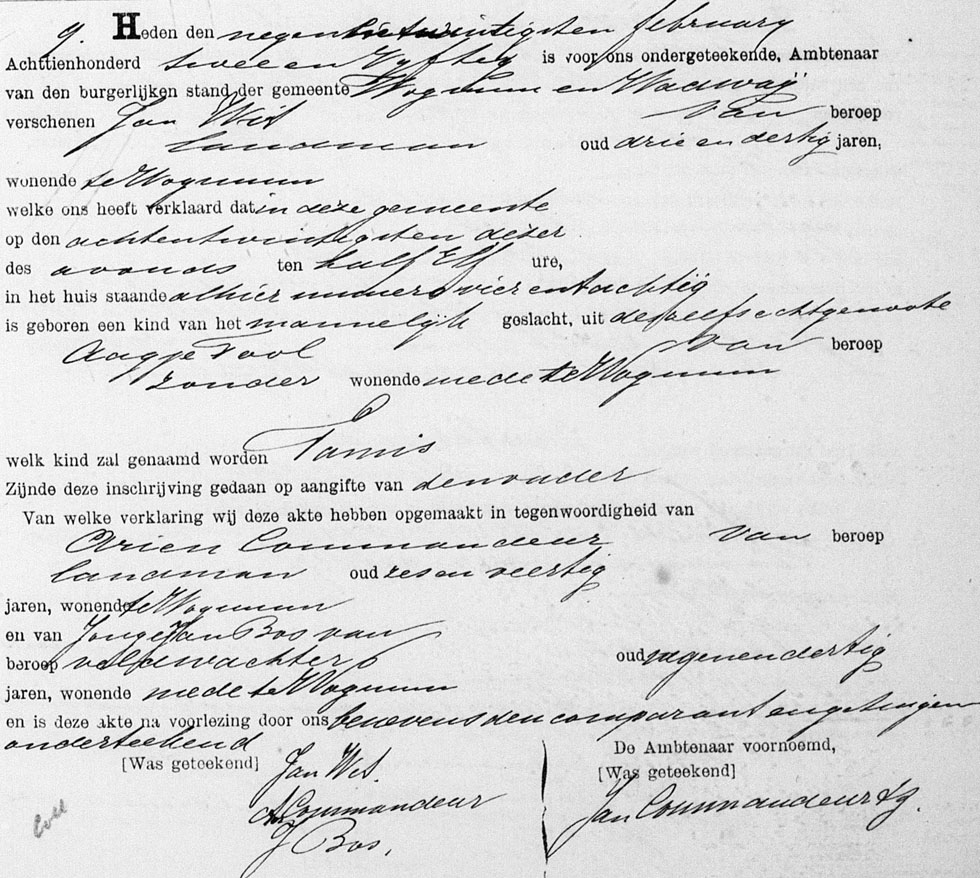 9. Heden den negenentwintigsten february
Achttienhonderd twee en Vyftig is voor ons ondergeteekende, Ambtenaar
van den burgerlijken stand der gemeente Wognum en Wadway
verschenen Jan Wit van beroep
landman oud drie en dertig jaren,
wonende te Wognum
welke ons heeft verklaard dat in deze gemeente
op den achtentwintigsten dezer
des avonds ten half Elf ure,
in het huis staande alhier numero vier en tachtig
is geboren een kind van het mannelijk geslacht, uit deszelfs echtgenoote
Aagje Tool van beroep
zonder wonende mede te Wognum
welk kind zal genaamd worden Tamis
Zijnde deze inschrijving gedaan op aangifte van den vader
Van welke verklaring wij deze akte hebben opgemaakt in tegenwoordigheid van
Arien Commandeur van beroep
landman oud zes en veertig
jaren, wonende te Wognum
en van Jonge Jan Bos van
beroep veldwachter oud negenendertig
jaren, wonende mede te Wognum
en is deze akte na voorlezing door ons benevens den comparant en getuigen
onderteekend
[Was geteekend] Jan Wit.
A Commandeur
J Bos.
De Ambtenaar voornoemd,
[Was geteekend]
Jan Commandeur